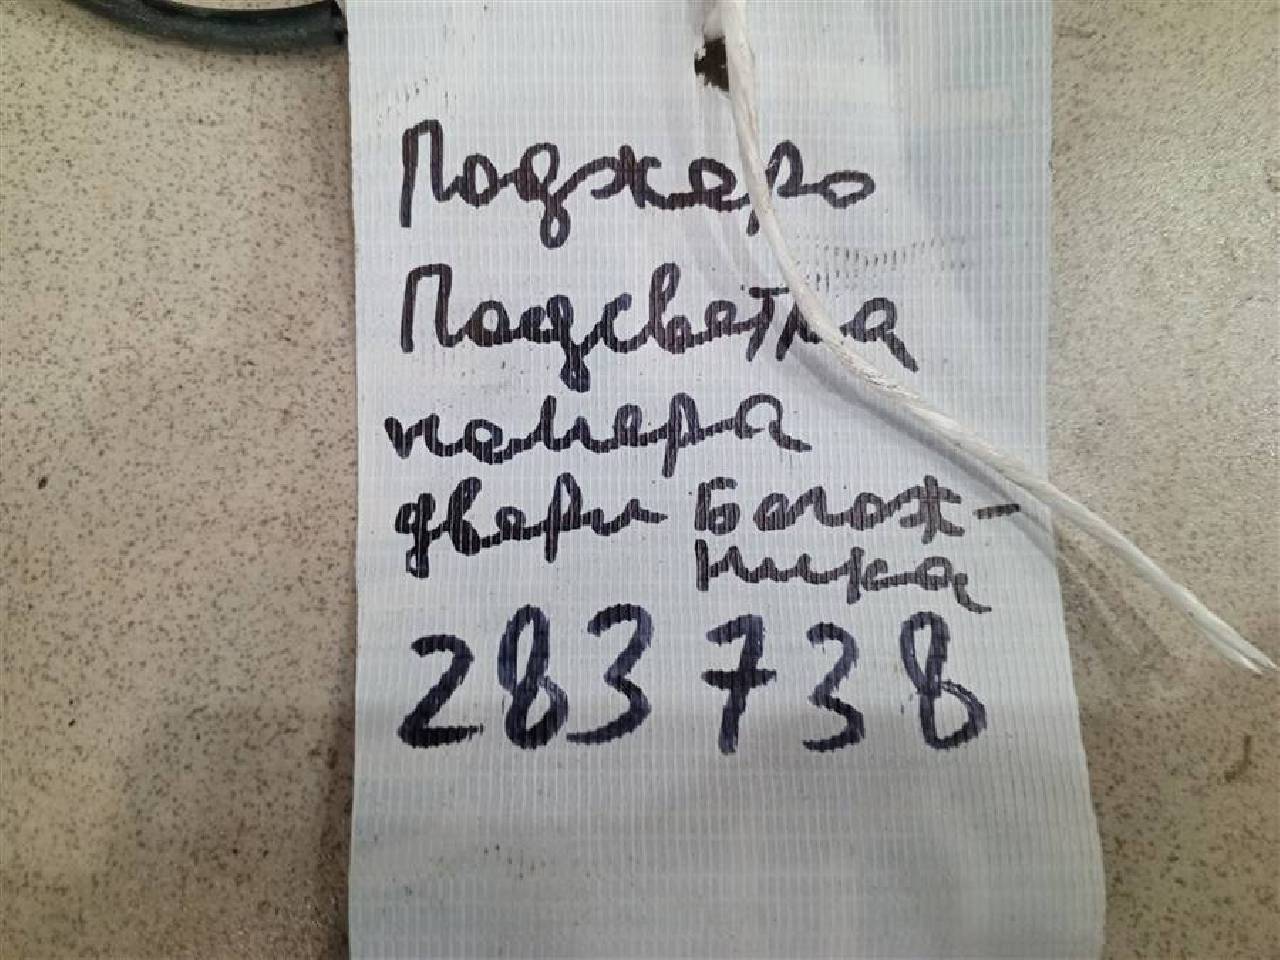 Поджеро
Подсветка
номера
двери Богаж-
ника
283738